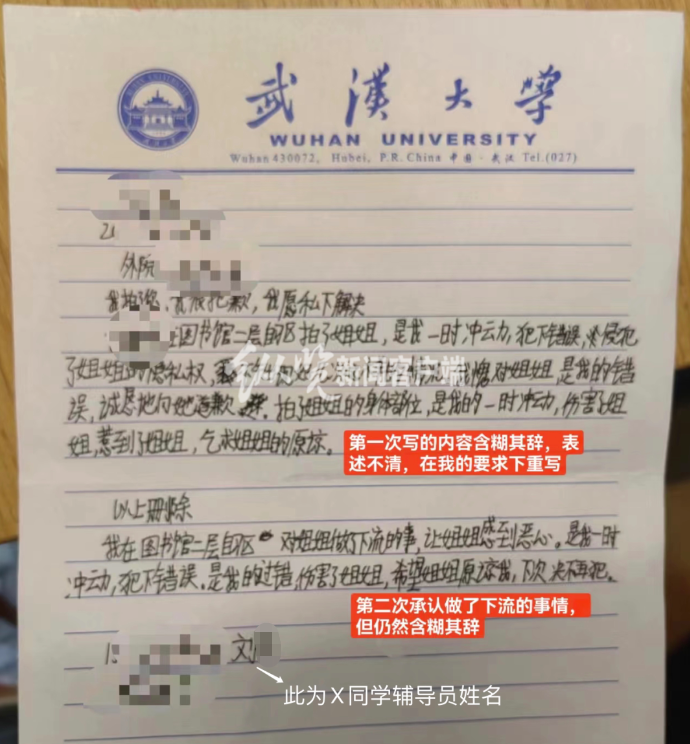 武漢大學
WUHAN UNIVERSITY
Wuhan 430072, Hubei, P.R. China 中国·武汉 Tel.(027)
外院
我拍了您,我很抱歉,我愿私下解决
在图书馆二层自习区拍了姐姐,是我一时冲动,犯下错误,侵犯
了姐姐的隐私权,
纵览新闻客户端
对姐姐,是我的错
误,诚恳地向她道歉 拍了姐姐的身体部位,是我的一时冲动,伤害了姐
姐,惹到了姐姐,乞求姐姐的原谅。
第一次写的内容含糊其辞,表
述不清,在我的要求下重写
以上删除
我在图书馆二层自习区 对姐姐做了下流的事,让姐姐感到恶心。是我一时
冲动,犯下错误。是我的过错,伤害了姐姐,希望姐姐原谅我,下次决不再犯。
第二次承认做了下流的事情,
但仍然含糊其辞
刘
此为X同学辅导员姓名